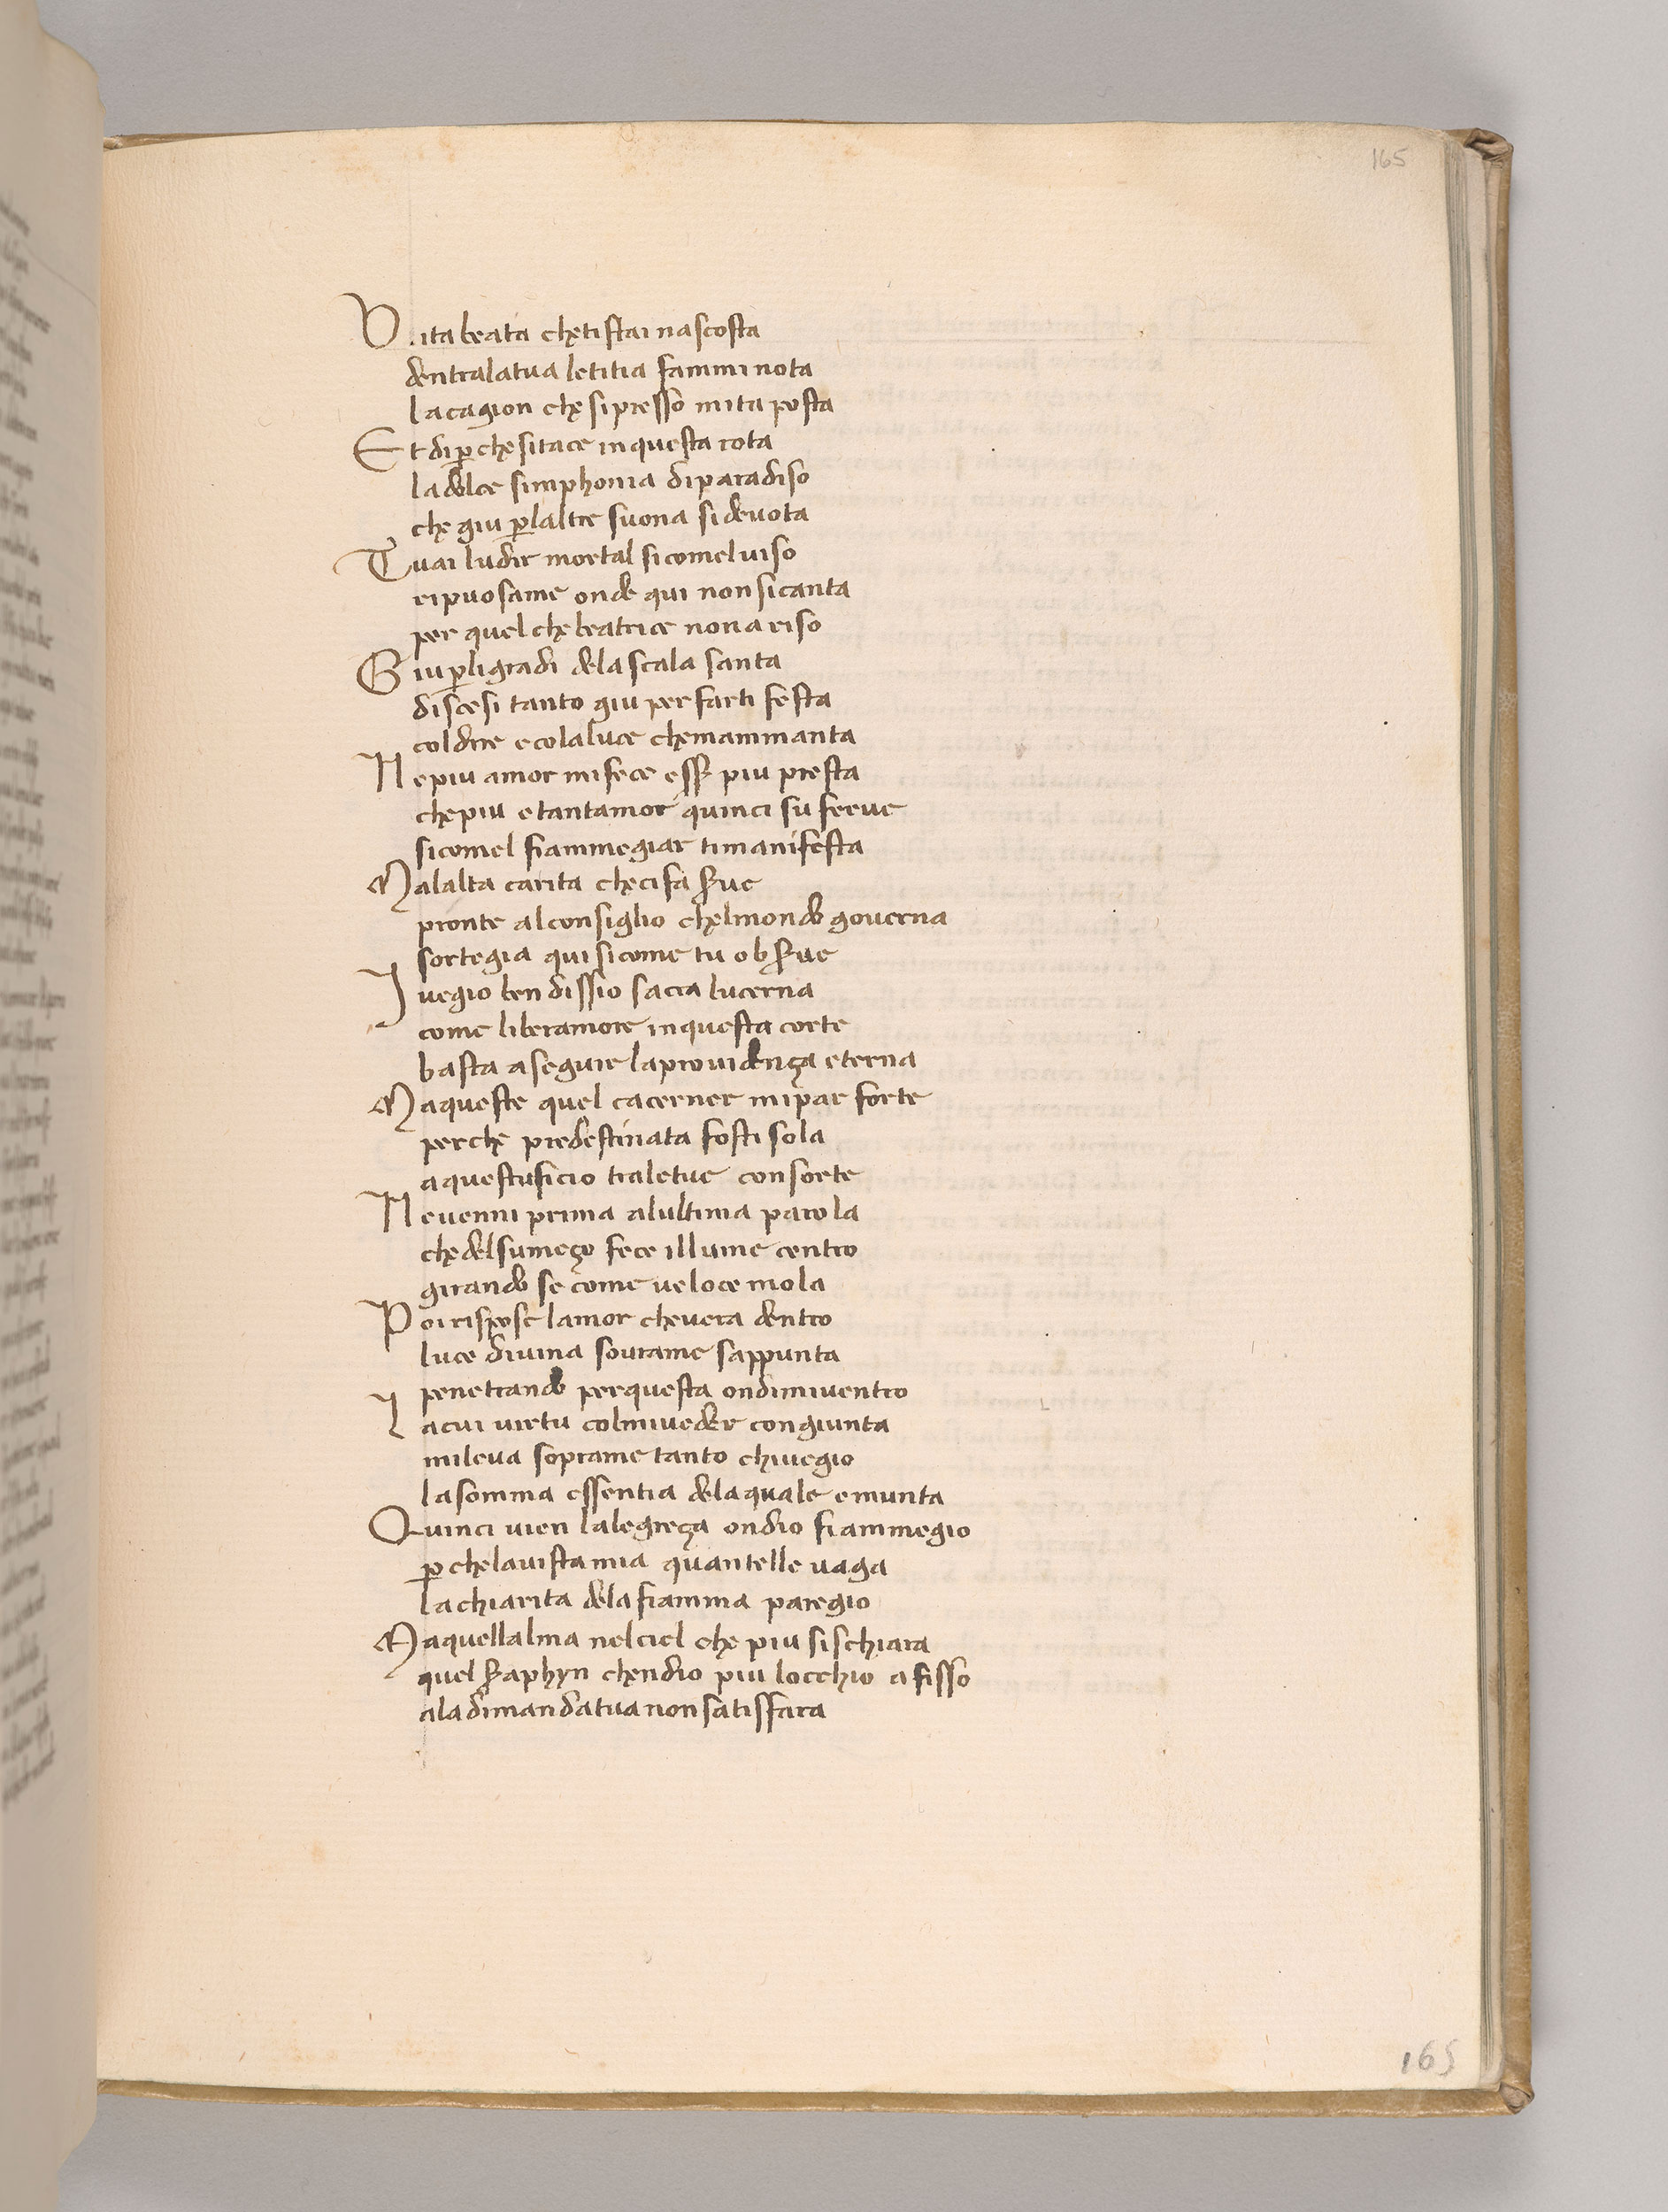 165
Vita beata che ti stai nascosta
dentralatua letitia fammi nota
la cagion che si presso mita posta
Et di ꝑche sitace in questa rota
la dolce simphonia di paradiso
che giu ꝑlaltre suona si devota
Tu ai ludir mortal si comel viso
rispuosame onde qui non sicanta
per quel che beatrice non a riso
Giu ꝑligradi dela scala santa
discesi tanto giu per farti festa
col dire e cola luce che mammanta
Ne piu amor mi fece esser piu presta
che piu e tantamor quinci su ferue
sicomel fiammegiar timanifesta
Malalta carita checifa serue
pronte al consiglio chelmondo gouerna
sortegia qui sicome tu obserue
I uegio ben dissio sacra lucerna
come libero amore in questa corte
basta a seguir laprouidença eterna
Ma queste quel cacerner mi par forte
perche predestinata fosti sola
a questuficio traletue consorte
Ne uenni prima alultima parola
che del sumeço fece illume centro
girando se come veloce mola
Poi rispose lamor cheuera dentro
luce diuina sourame sappunta
penetrando perquesta ondimiuentro
I acui uirtu colmiueder congiunta
mileua soprame tanto chiuegio
la somma essentia dela quale emunta
Quinci uien lalegreça ondio fiammegio
ꝑ chelauista mia quantelle uaga
lachiarita dela fiamma paregio
Ma quellalma nel ciel che piu si schiara
quel seraphyn chendio piu locchio a fisso
ala dimandatua non satisfara
165